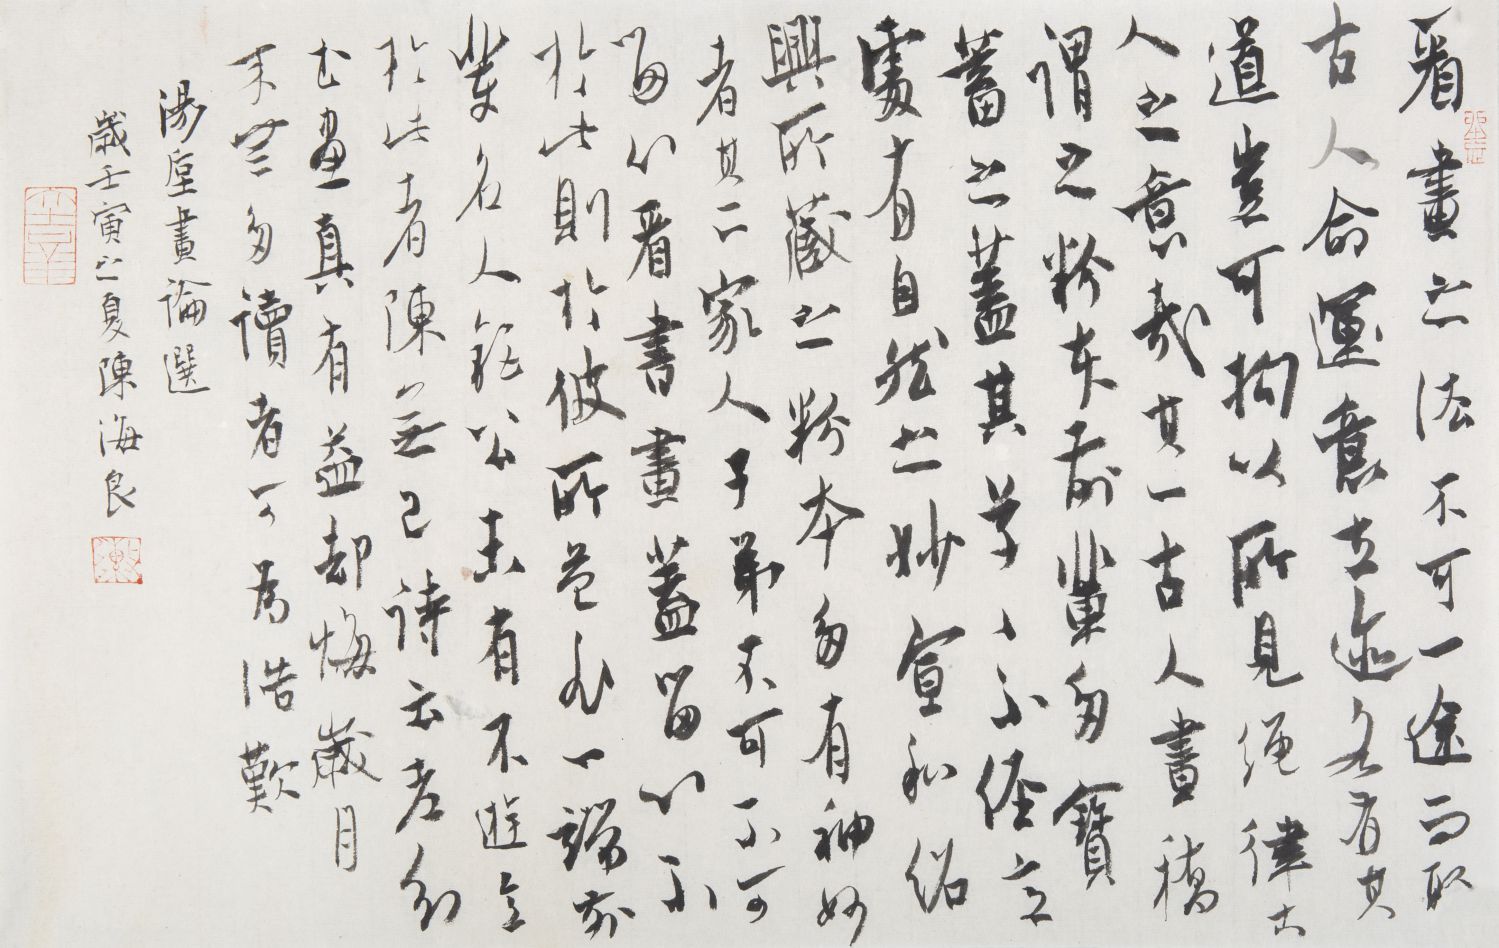 看畫之法不可一途而取
古人命運意立迹各有其
道豈可拘以所見繩律古
人之意哉其一古人畫稿
謂之粉本前輩多寶
蓄之蓋其草草不經意
處有自然之妙宣和紹
興所藏之粉本多有神妙
者其二家人子弟不可不可
留以看書畫蓋留以不
於此則於彼所益非一端前
輩名人鉅公未有不遊意
於此者陳無己詩云老知
書畫真有益却悔歲月
來無多讀者可為浩歎
湯垕畫論選
歲壬寅之夏陳海良